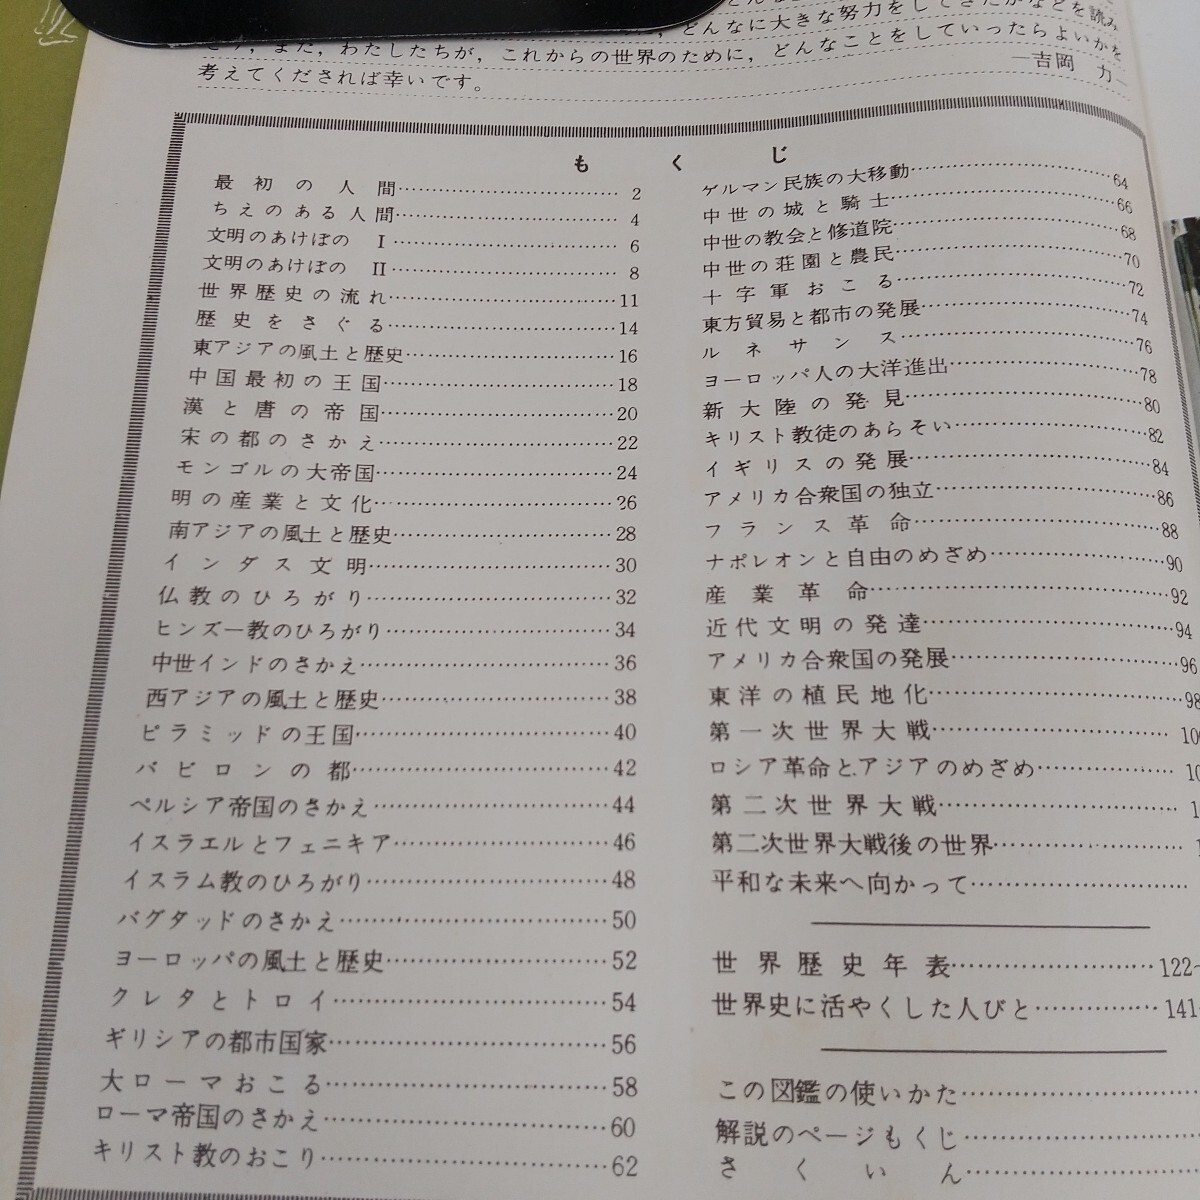 どんなに大きな努力をしてきたかなどを読み
また，わたしたちが，これからの世界のために，どんなことをしていったらよいかを
考えてくだされば幸いです。
―吉岡　力―
もくじ
最初の人間……2
ちえのある人間……4
文明のあけぼの　Ⅰ……6
文明のあけぼの　Ⅱ……8
世界歴史の流れ……11
歴史をさぐる……14
東アジアの風土と歴史……16
中国最初の王国……18
漢と唐の帝国……20
宋の都のさかえ……22
モンゴルの大帝国……24
明の産業と文化……26
南アジアの風土と歴史……28
インダス文明……30
仏教のひろがり……32
ヒンズー教のひろがり……34
中世インドのさかえ……36
西アジアの風土と歴史……38
ピラミッドの王国……40
バビロンの都……42
ペルシア帝国のさかえ……44
イスラエルとフェニキア……46
イスラム教のひろがり……48
バグダッドのさかえ……50
ヨーロッパの風土と歴史……52
クレタとトロイ……54
ギリシアの都市国家……56
大ローマおこる……58
ローマ帝国のさかえ……60
キリスト教のおこり……62
ゲルマン民族の大移動……64
中世の城と騎士……66
中世の教会と修道院……68
中世の荘園と農民……70
十字軍おこる……72
東方貿易と都市の発展……74
ルネサンス……76
ヨーロッパ人の大洋進出……78
新大陸の発見……80
キリスト教徒のあらそい……82
イギリスの発展……84
アメリカ合衆国の独立……86
フランス革命……88
ナポレオンと自由のめざめ……90
産業革命……92
近代文明の発達……94
アメリカ合衆国の発展……96
東洋の植民地化……98
第一次世界大戦……
ロシア革命とアジアのめざめ……
第二次世界大戦……
第二次世界大戦後の世界……
平和な未来へ向かって……
世界歴史年表……122
世界史に活やくした人びと……141
この図鑑の使いかた……
解説のページもくじ……
さくいん……